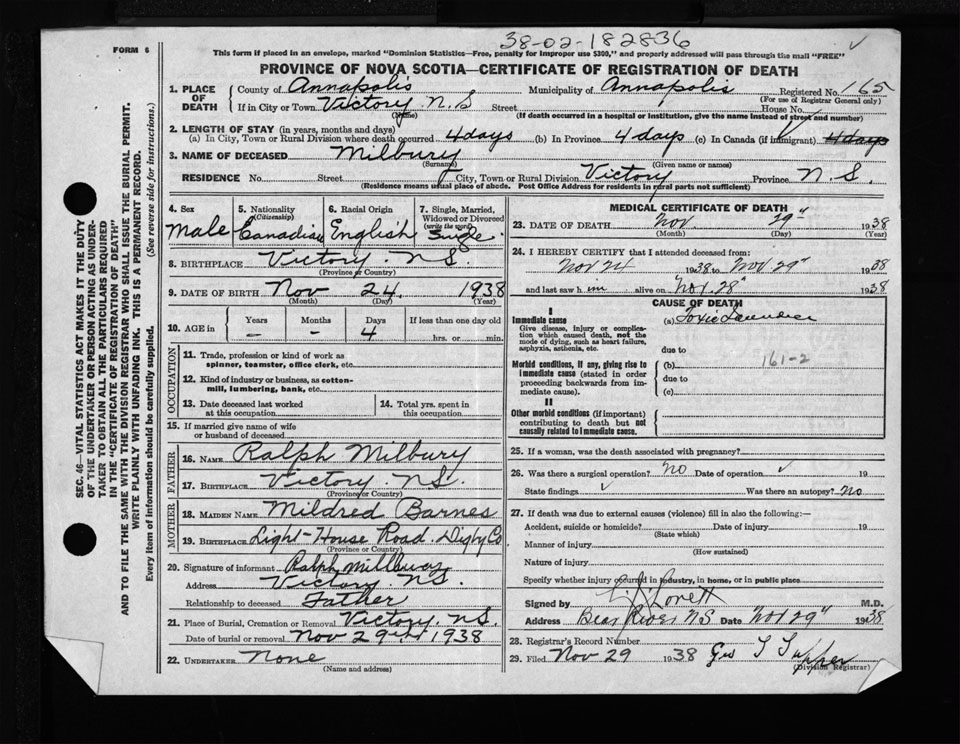 38-02-182836
FORM 6
This form if placed in an envelope, marked "Dominion Statistics—Free, penalty for improper use $300," and properly addressed will pass through the mail "FREE"
PROVINCE OF NOVA SCOTIA—CERTIFICATE OF REGISTRATION OF DEATH
1. PLACE OF DEATH County of Annapolis Municipality of Annapolis Registered No. 165
(For use of Registrar General only)
If in City or Town Victory N.S Street House No.
(Name) (If death occurred in a hospital or institution, give the name instead of street and number)
2. LENGTH OF STAY (in years, months and days)
(a) In City, Town or Rural Division where death occurred 4 days (b) In Province 4 days (c) In Canada (if immigrant) 4 days
3. NAME OF DECEASED Milbury
(Surname) (Given name or names)
RESIDENCE No. Street City, Town or Rural Division Victory Province N.S.
(Residence means usual place of abode. Post Office Address for residents in rural parts not sufficient)
4. Sex
Male
5. Nationality
(Citizenship)
Canadian
6. Racial Origin
English
7. Single, Married, Widowed or Divorced
(write the word)
Single
8. BIRTHPLACE Victory N.S.
(Province or Country)
9. DATE OF BIRTH Nov 24 1938
(Month) (Day) (Year)
10. AGE in Years Months Days If less than one day old
– – 4 hrs. or min.
OCCUPATION
11. Trade, profession or kind of work as
spinner, teamster, office clerk, etc.
12. Kind of industry or business, as cotton-
mill, lumbering, bank, etc.
13. Date deceased last worked
at this occupation
14. Total yrs. spent in
this occupation
15. If married give name of wife
or husband of deceased
FATHER
16. NAME Ralph Milbury
17. BIRTHPLACE Victory N.S.
(Province or Country)
MOTHER
18. MAIDEN NAME Mildred Barnes
19. BIRTHPLACE Light-House Road, Digby Co
(Province or Country)
20. Signature of informant Ralph Millbury
Address Victory N.S.
Relationship to deceased Father
21. Place of Burial, Cremation or Removal Victory N.S.
Date of burial or removal Nov 29th 1938
22. UNDERTAKER None
(Name and address)
MEDICAL CERTIFICATE OF DEATH
23. DATE OF DEATH Nov. 29" 1938
(Month) (Day) (Year)
24. I HEREBY CERTIFY that I attended deceased from:
Nov 24 1938 to Nov 29" 1938
and last saw him alive on Nov. 28" 1938
CAUSE OF DEATH
I
Immediate cause
Give disease, injury or complication which caused death, not the mode of dying, such as heart failure, asphyxia, asthenia, etc.
(a) Toxic
due to
Morbid conditions, if any, giving rise to immediate cause (stated in order proceeding backwards from immediate cause).
(b) 161-2
due to
(c)
II
Other morbid conditions (if important) contributing to death but not causally related to immediate cause.
25. If a woman, was the death associated with pregnancy?
26. Was there a surgical operation? No Date of operation 19
State findings Was there an autopsy? No
27. If death was due to external causes (violence) fill in also the following:—
Accident, suicide or homicide? Date of injury 19
(State which)
Manner of injury
(How sustained)
Nature of injury
Specify whether injury occurred in industry, in home, or in public place
Signed by Lovett M.D.
Address Bear River NS Date Nov 29" 1938
28. Registrar's Record Number
29. Filed Nov 29 1938 Geo T Tupper
(Division Registrar)
SEC. 46—VITAL STATISTICS ACT MAKES IT THE DUTY
OF THE UNDERTAKER OR PERSON ACTING AS UNDER-
TAKER TO OBTAIN ALL THE PARTICULARS REQUIRED
IN THE "CERTIFICATE OF REGISTRATION OF DEATH"
AND TO FILE THE SAME WITH THE DIVISION REGISTRAR WHO SHALL ISSUE THE BURIAL PERMIT.
WRITE PLAINLY WITH UNFADING INK. THIS IS A PERMANENT RECORD.
Every item of information should be carefully supplied. (See reverse side for instructions.)